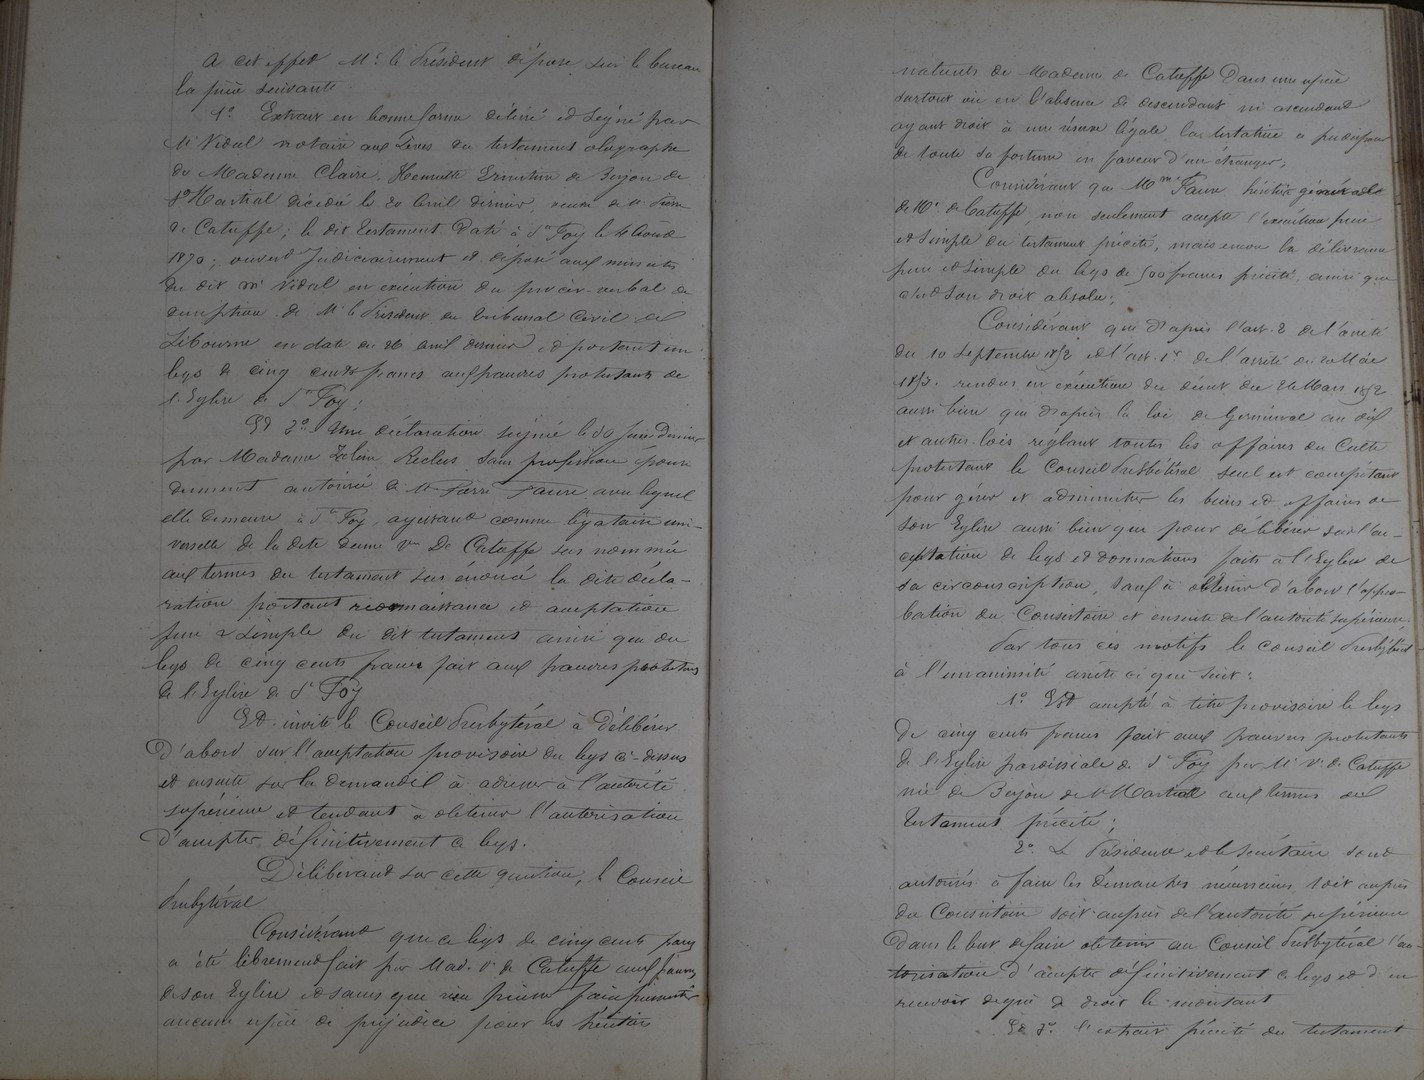 A cet effet Mr. le Président dépose sur le bureau
la pièce suivante.
1o Extrait en bonne forme délivré et signé par
Mr Vidal notaire aux Lèves du testament olographe
de Madame Claire, Henriette Ernestine de Bujon de
St Martial décédée le 20 Avril dernier, veuve de Mr
de Cateffe; le dit testament daté à Ste Foy le 4 Août
1870; ouvert judiciairement et déposé aux minutes
du dit Mr Vidal en exécution du procès-verbal de
de Mr le Président du Tribunal Civil de
Libourne en date du 26 avril dernier et portant un
legs de cinq cents francs aux pauvres protestants de
l'Eglise de Ste Foy;
Et 2o Une déclaration signée le 30 dernier
par Madame Zéline Reclus sans profession
dument autorisée de Mr Pierre Faure avec lequel
elle demeure à Ste Foy, agissant comme légataire uni-
verselle de la dite dame Vve De Cateffe sus nommée
aux termes du testament sus énoncé la dite décla-
ration portant reconnaissance et acceptation
pure & simple du dit testament ainsi que du
legs de cinq cents francs fait aux pauvres protestants
de l'Eglise de Ste Foy
Et invite le Conseil Presbytéral à délibérer
d'abord sur l'acceptation provisoire du legs ci-dessus
et ensuite sur la demande à adresser à l'autorité
supérieure et tendant à obtenir l'autorisation
d'accepter définitivement ce legs.
Délibérant sur cette question, le Conseil
Presbytéral
Considérant que ce legs de cinq cents francs
a été librement fait par Mad. Ve de Cateffe aux pauvres
de son Eglise et sans que rien puisse faire
aucune espèce de préjudice pour les héritiers
naturels de Madame de Cateffe dans une espèce
surtout où en l'absence de descendant ni ascendant
ayant droit à une réserve légale la testatrice a pu disposer
de toute sa fortune en faveur d'un étranger;
Considérant que Mme Faure héritière générale
de Me de Cateffe, non seulement accepte l'exécution pure
et simple du testament précité, mais encore la délivrance
pure et simple du legs de 500 francs précité ainsi que
c'est son droit absolu;
Considérant que d'après l'art. 2 de l'arrêté
du 10 Septembre 1852 et l'art. 1er de l'arrêté du 20 Mai
1853. rendus en exécution du décret du 26 Mars 1852
aussi bien que d'après la loi de Germinal an dix
et autres lois réglant toutes les affaires du Culte
protestant le Conseil Presbytéral seul est compétant
pour gérer et administrer les biens et affaires de
son Eglise aussi bien que pour délibérer sur l'ac-
ceptation de legs et donnations faits à l'Eglise de
sa circonscription, sauf à obtenir d'abord l'appro-
bation du Consistoire et ensuite de l'autorité supérieure,
Par tous ces motifs le conseil Presbytéral
à l'unanimité arrête ce qui suit:
1o Est accepté à titre provisoire le legs
de cinq cents francs fait aux pauvres protestants
de l'Eglise paroissiale de Ste Foy par Me Ve de Cateffe
née de Bujon de St Martial aux termes du
testament précité;
2o. Le Président et le Secrétaire sont
autorisés à faire les démarches nécessaires, soit auprès
du Consistoire soit auprès de l'autorité supérieure
dans le but de faire obtenir au Conseil Presbytéral l'au-
torisation d'accepter définitivement ce legs et d'en
recevoir de qui de droit le montant
Et 3o. l'extrait précité du testament